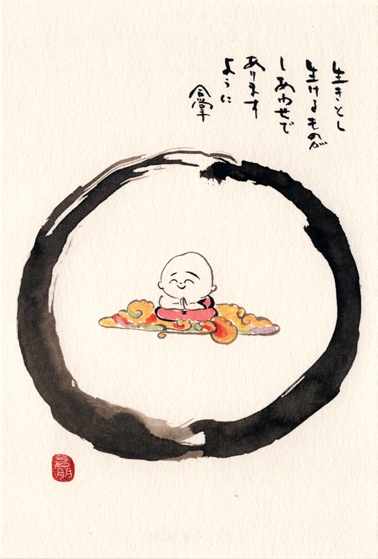 生きとし
生けるものが
しあわせで
ありますように
合掌